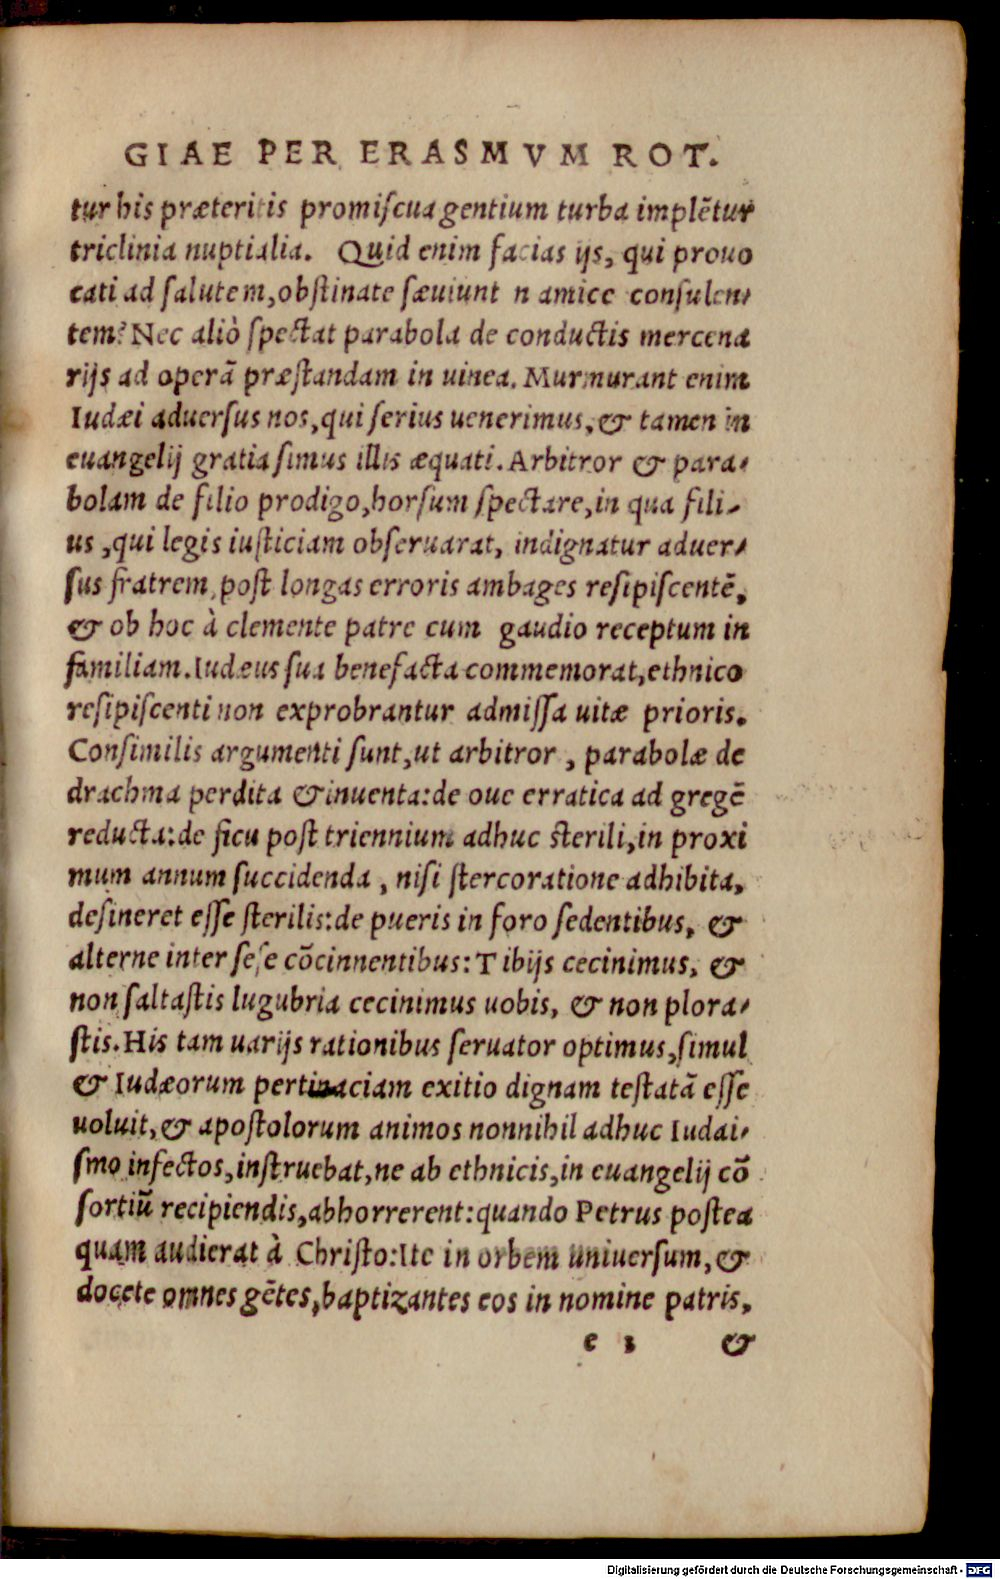 GIAE PER ERASMVM ROT.
tur his præteritis promiſcua gentium turba implētur
triclinia nuptialia. Quid enim facias ijs, qui prouo
cati ad ſalutem, obſtinate ſæuiunt n amice conſulen-
tem? Nec aliò ſpectat parabola de conductis mercena
rijs ad operā præſtandam in uinea. Murmurant enim
Iudæi aduerſus nos, qui ſerius uenerimus, & tamen in
euangelij gratia ſimus illis æquati. Arbitror & para-
bolam de filio prodigo, horſum ſpectare, in qua fili-
us, qui legis iuſticiam obſeruarat, indignatur aduer-
ſus fratrem, poſt longas erroris ambages reſipiſcentē,
& ob hoc à clemente patre cum gaudio receptum in
familiam. Iudæus ſua benefacta commemorat, ethnico
reſipiſcenti non exprobrantur admiſſa uitæ prioris.
Conſimilis argumenti ſunt, ut arbitror, parabolæ de
drachma perdita & inuenta: de oue erratica ad gregē
reducta: de ficu poſt triennium adhuc ſterili, in proxi
mum annum ſuccidenda, niſi ſtercoratione adhibita,
deſineret eſſe ſterilis: de pueris in foro ſedentibus, &
alterne inter ſeſe cōcinnentibus: Tibijs cecinimus, &
non ſaltaſtis lugubria cecinimus uobis, & non plora-
ſtis. His tam uarijs rationibus ſeruator optimus, ſimul
& Iudæorum pertinaciam exitio dignam teſtatā eſſe
uoluit, & apoſtolorum animos nonnihil adhuc Iudai-
ſmo infectos, inſtruebat, ne ab ethnicis, in euangelij cō
ſortiū recipiendis, abhorrerent: quando Petrus poſtea
quam audierat à Chriſto: Ite in orbem uniuerſum, &
docete omnes gētes, baptizantes eos in nomine patris,
e 3 &
Digitalisierung gefördert durch die Deutsche Forschungsgemeinschaft - DFG